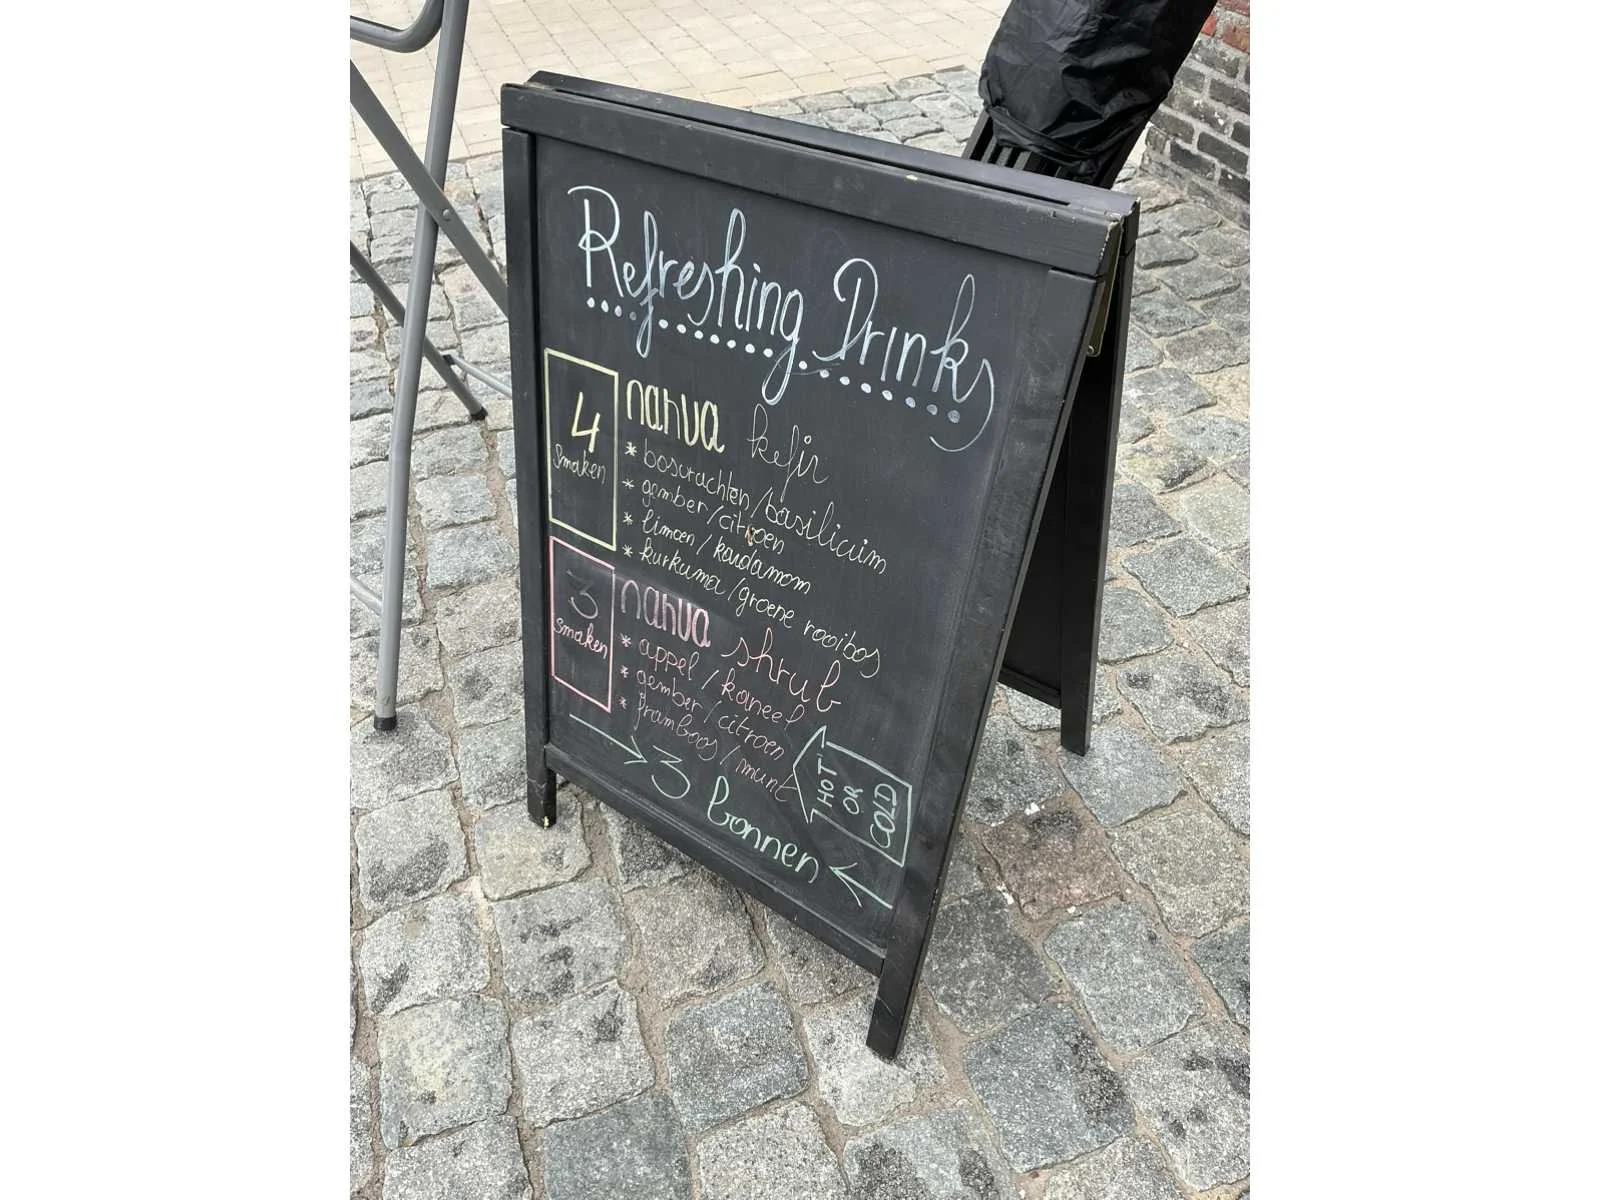 Refreshing Drinks
4
smaken
nahua kefir
* bosvrachten/basilicum
* gember/citroen
* limoen/kardamom
* kurkuma/groene rooibos
3
smaken
nahua shrub
* appel/kaneel
* gember/citroen
* framboos/munt
HOT
OR
COLD
3 bonnen